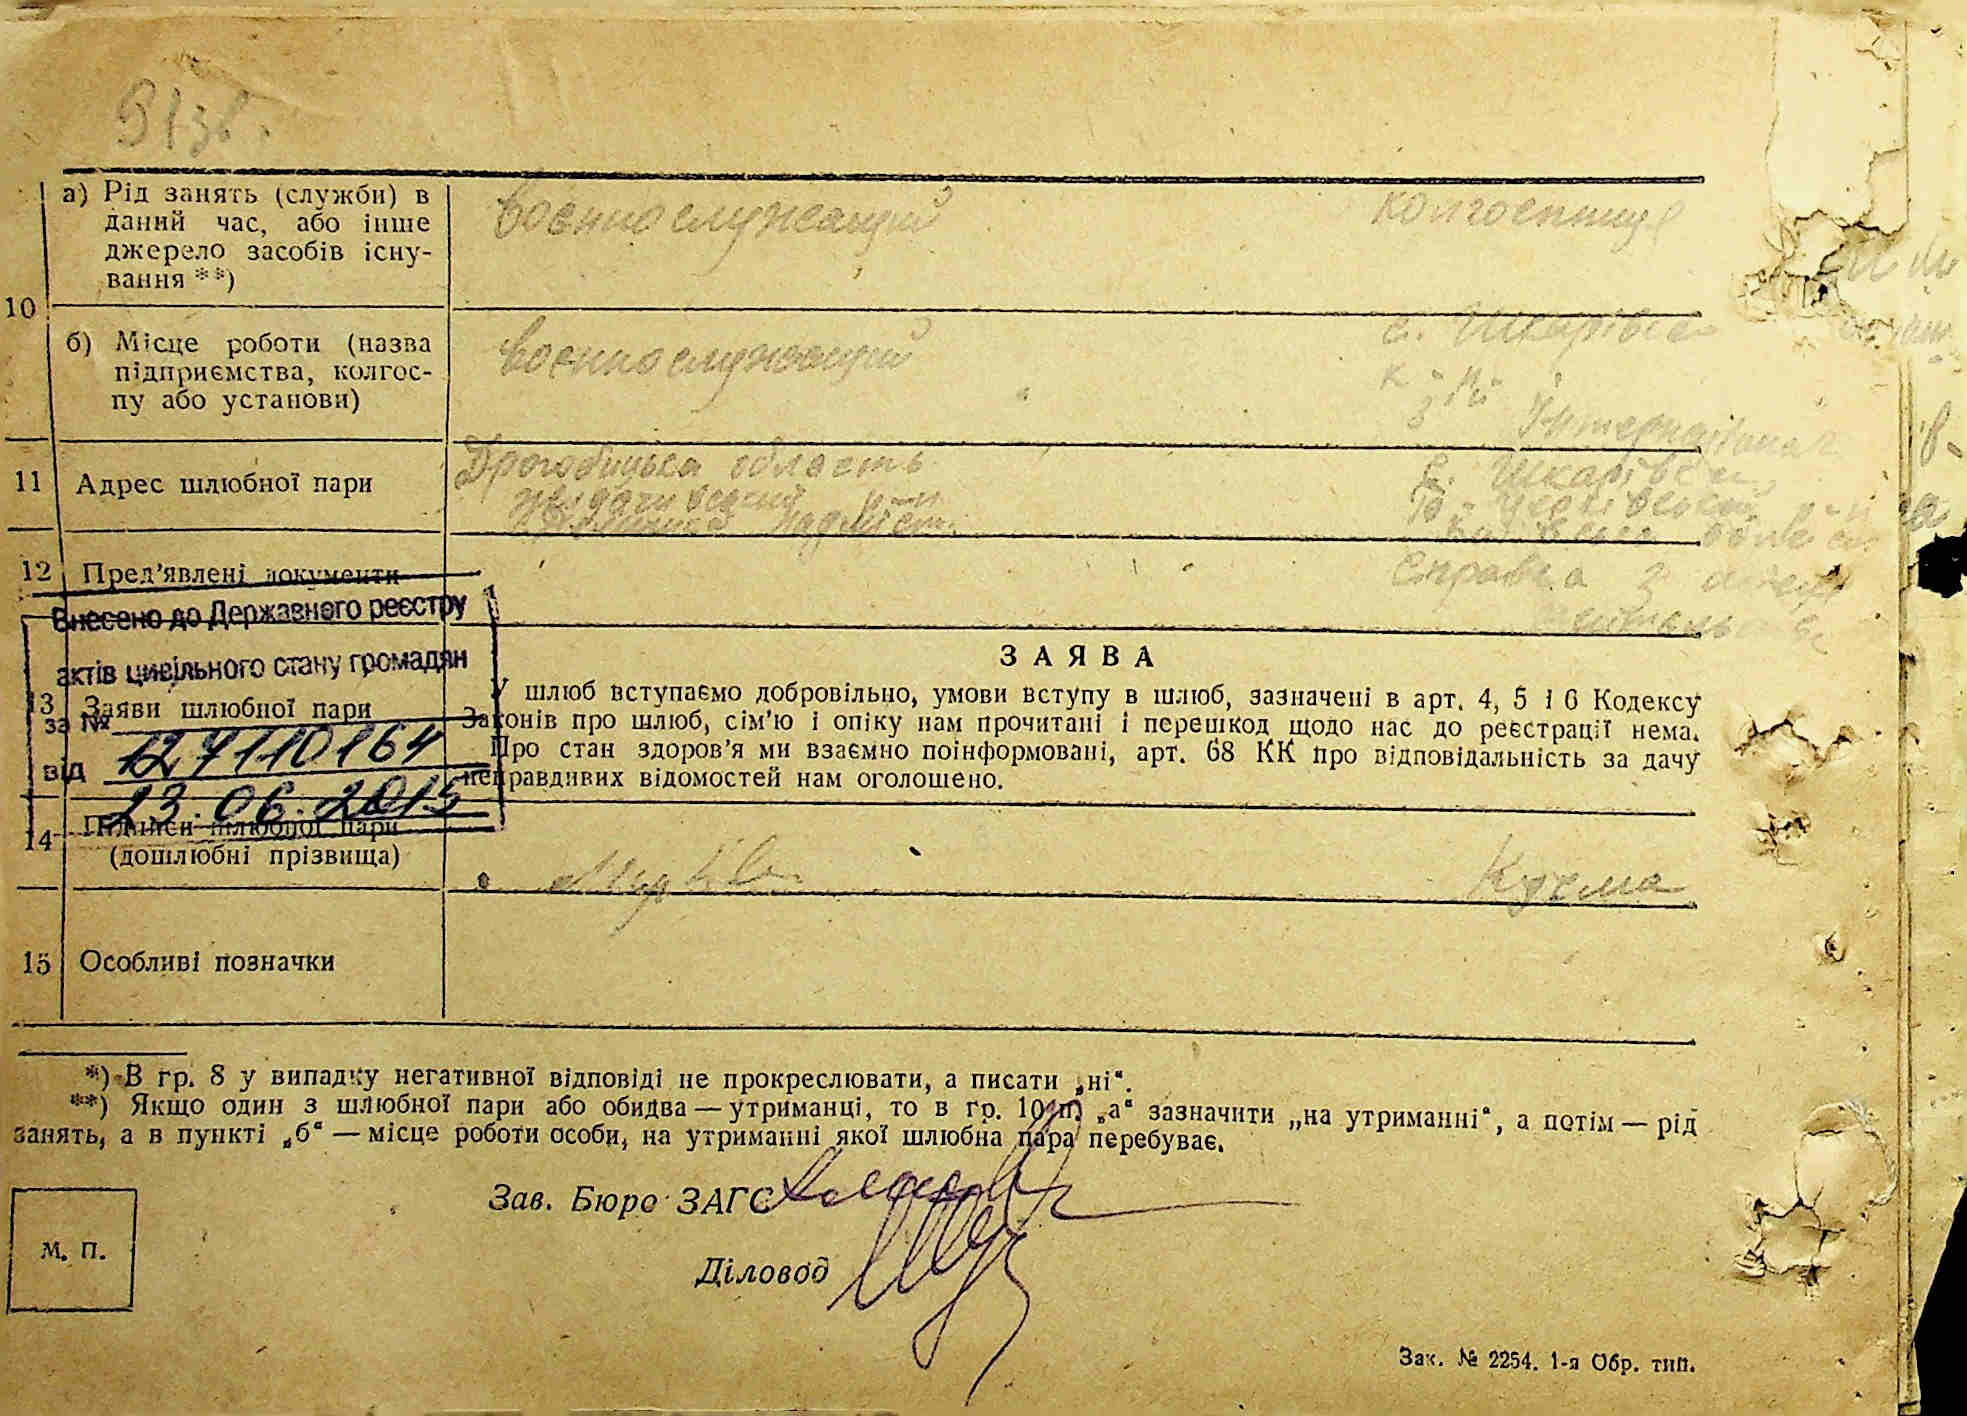 а) Рід занять (служби) в
даний час, або інше
джерело засобів існу-
вання **)
воєннослужащий
колгоспниця
10
б) Місце роботи (назва
підприємства, колгос-
пу або установи)
воєннослужащий
с. Шкарівка
к-п
Інтернаціонал
11 Адрес шлюбної пари
Дрогобицька область
с. Шкарівка
12 Пред'явлені документи
Справка з
Внесено до Державного реєстру
актів цивільного стану громадян
за №
127110164
від
23.06.2015
13 Заяви шлюбної пари
ЗАЯВА
У шлюб вступаємо добровільно, умови вступу в шлюб, зазначені в арт. 4, 5 і 6 Кодексу
Законів про шлюб, сім'ю і опіку нам прочитані і перешкод щодо нас до реєстрації нема.
Про стан здоров'я ми взаємно поінформовані, арт. 68 КК про відповідальність за дачу
неправдивих відомостей нам оголошено.
14 Підписи шлюбної пари
(дошлюбні прізвища)
Кучма
15 Особливі позначки
*) В гр. 8 у випадку негативної відповіді не прокреслювати, а писати „ні“.
**) Якщо один з шлюбної пари або обидва — утриманці, то в гр. 10 п. „а“ зазначити „на утриманні“, а потім — рід
занять, а в пункті „б“ — місце роботи особи, на утриманні якої шлюбна пара перебуває.
Зав. Бюро ЗАГС
Діловод
М. П.
Зак. № 2254. 1-я Обр. тип.